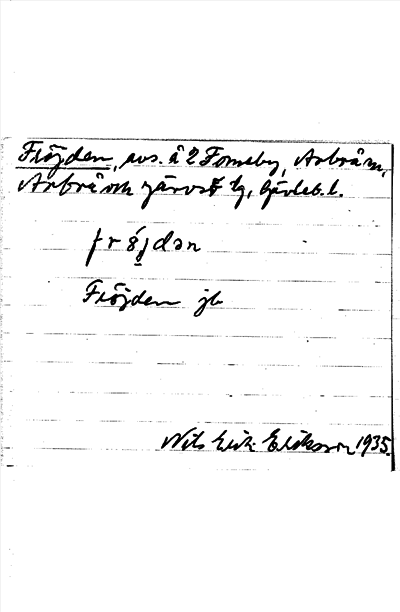 Fröjden, avs. å 2 Forneby, Arbrå sn,
Arbrå och Järvsö tg, Gävleb. l.
fröjdən
Fröjden jb
Nils Erik Eriksson 1935.